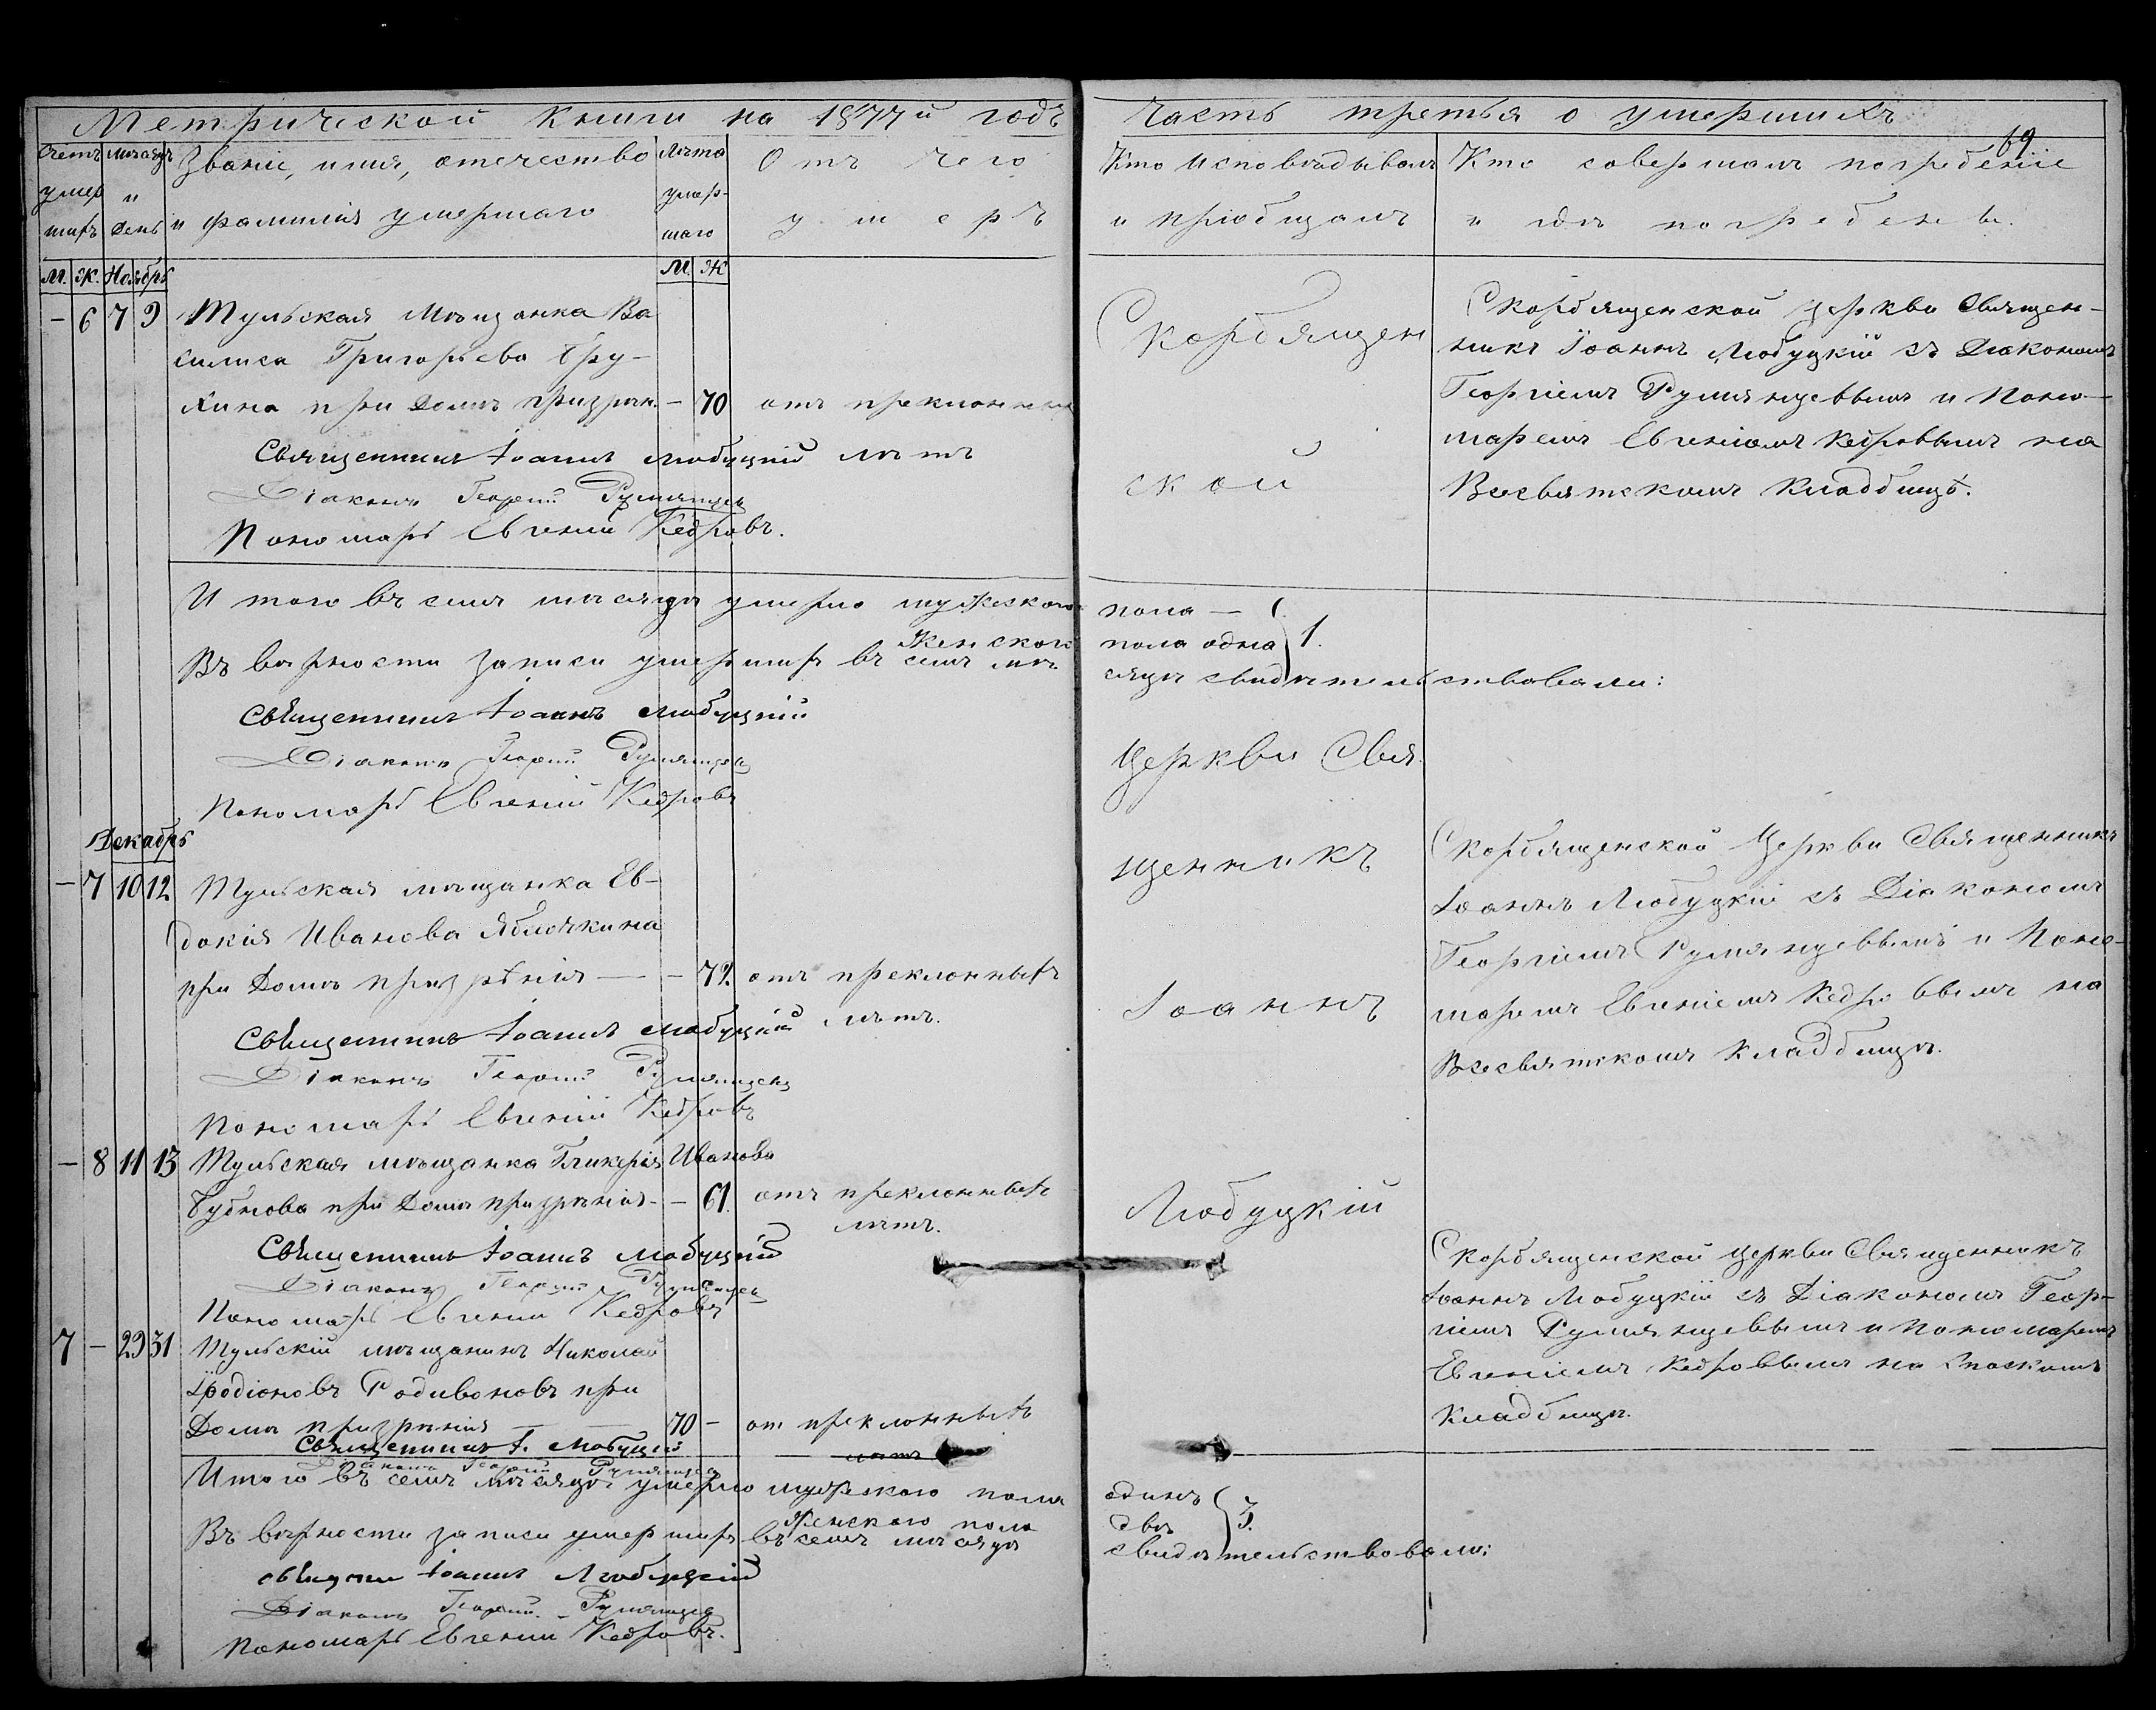 Метрической Книги на 1877й годъ
Часть третья о умершихъ
69
Счетъ умер шихъ
М. Ж.
Мѣсяцъ и День
Званіе, имя, отечество
и фамилія умершаго
Лѣта умер- шаго
М. Ж
Отъ чего
умеръ
Кто исповѣдывалъ
и пріобщалъ
Кто совершалъ погребеніе
и гдѣ погребены.
Ноябрь
– 6 7 9 Тульская Мѣщанка Ва
силиса Григорьева
хина при Домѣ призрѣн. – 70 отъ преклонныхъ
лѣтъ
Священникъ Іоаннъ Любуцкій
Діаконъ Георгій Румянцевъ
Пономарь Евгеній Кедровъ.
Скорбящен
ской
Скорбященской церкви Священ-
никъ Іоаннъ Любуцкій съ Діакономъ
Георгіемъ Румянцевымъ и Поно-
маремъ Евгеніемъ Кедровымъ на
Всесвятскомъ Кладбищѣ.
Итого въ семъ мѣсяцѣ умерло мужескаго пола –
Женскаго пола одна 1.
Въ вѣрности записи умершихъ въ семъ мѣ
сяцѣ свидѣтельствовали:
Священникъ Іоаннъ Любуцкій
Діаконъ Георгій Румянцевъ
Пономарь Евгеній Кедровъ
Церкви Свя
щенникъ
Іоаннъ
Любуцкій
Декабрь
– 7 10 12 Тульская мѣщанка Ев-
докія Иванова Яблочкина
при Домѣ призрѣнія – – 72. отъ преклонныхъ
лѣтъ.
Священникъ Іоаннъ Любуцкій
Діаконъ Георгій Румянцевъ
Пономарь Евгеній Кедровъ
Скорбященской Церкви Священникъ
Іоаннъ Любуцкій съ Діакономъ
Георгіемъ Румянцевымъ и Поно-
маремъ Евгеніемъ Кедровымъ на
Всесвятскомъ Кладбищѣ.
– 8 11 13 Тульская мѣщанка Гликерія Иванова
Бубнова при Домѣ призрѣнія – – 61. отъ преклонныхъ
лѣтъ.
Священникъ Іоаннъ Любуцкій
Діаконъ Георгій Румянцевъ
Пономарь Евгеній Кедровъ
7 – 29 31 Тульскій мѣщанинъ Николай
Іродіоновъ Родивоновъ при
Домѣ призрѣнія 70 – от преклонныхъ
лѣтъ
Священникъ І. Любуцкій
Діаконъ Георгій Румянцевъ
Скорбященской церкви Священникъ
Іоаннъ Любуцкій съ Діакономъ Геор-
гіемъ Румянцевымъ и Пономаремъ
Евгеніемъ Кедровымъ на Спаскомъ
Кладбищѣ.
Итого въ семъ мѣсяцѣ умерло мужескаго пола одинъ
Женскаго пола двѣ 3.
Въ вѣрности записи умершихъ въ семъ мѣсяцѣ свидѣтельствовали:
Іоаннъ Любуцкій
Діаконъ Георгій Румянцевъ
Пономарь Евгеній Кедровъ.